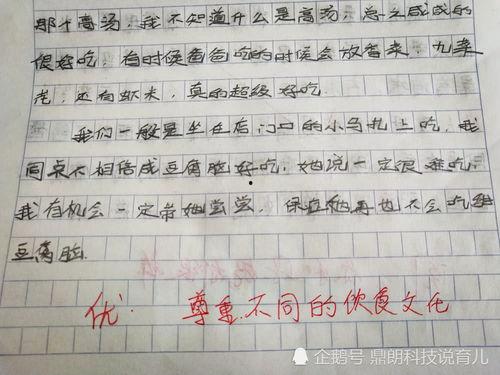 那个高汤，我不知道什么是高汤，总之咸咸的
很好吃，有时候爸爸吃的时候会放香菜，九菜
老，还有虾米，真的超级好吃.
我们一般是坐在店门口的小马扎上吃，我
同桌不相信咸豆腐脑好吃，她说一定很难吃，
我有机会一定带她尝尝，保证她再也不会吃甜
豆腐脑.
优. 尊重不同的饮食文化
企鹅号 鼎朗科技说育儿